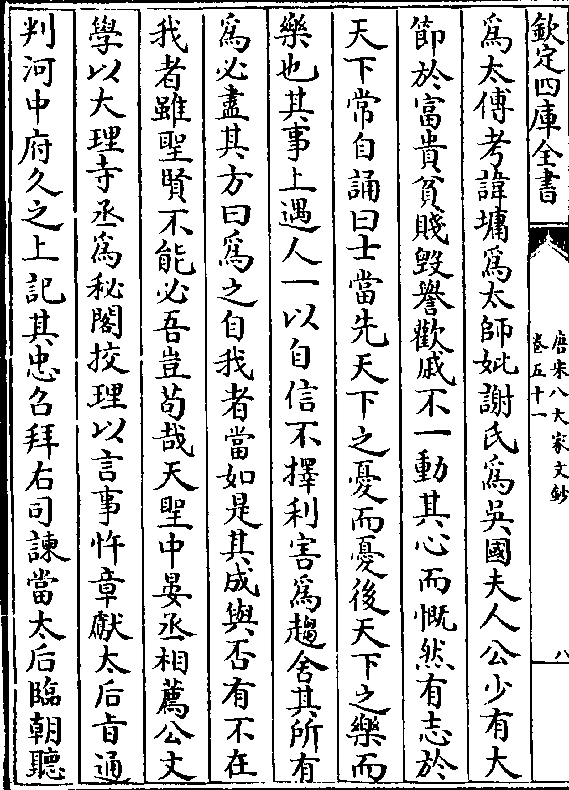 欽定四庫全書
唐宋八大家文鈔
卷五十一
八
爲太傅考諱墉爲太師妣謝氏爲吳國夫人公少有大
節於富貴貧賤毀譽歡戚不一動其心而慨然有志於
天下常自誦曰士當先天下之憂而憂後天下之樂而
樂也其事上遇人一以自信不擇利害爲趨舍其所有
爲必盡其方曰爲之自我者當如是其成與否有不在
我者雖聖賢不能必吾豈苟哉天聖中晏丞相薦公文
學以大理寺丞爲秘閣挍理以言事忤章獻太后㫖通
判河中府久之上記其忠召拜右司諫當太后臨朝聽